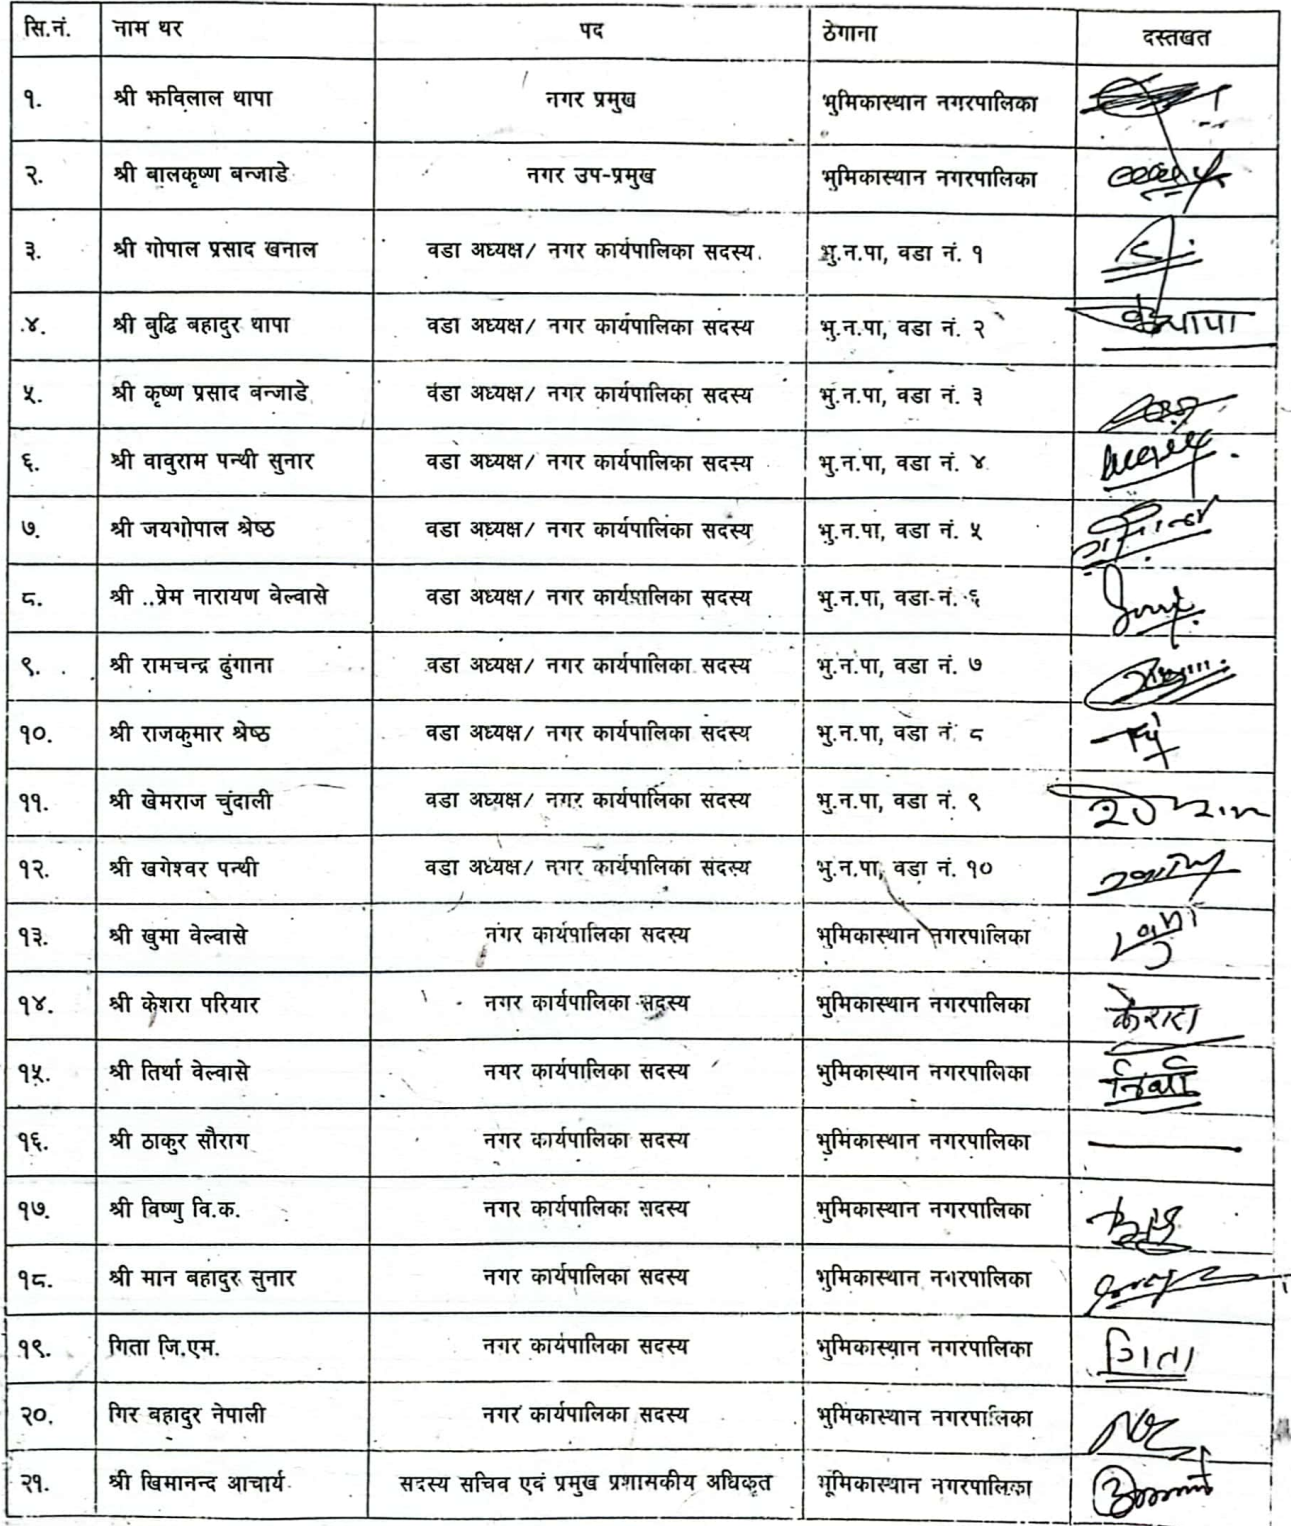 सि.नं. नाम थर पद ठेगाना दस्तखत
१. श्री झविलाल थापा नगर प्रमुख भुमिकास्थान नगरपालिका
२. श्री बालकृष्ण बन्जाडे नगर उप-प्रमुख भुमिकास्थान नगरपालिका
३. श्री गोपाल प्रसाद खनाल वडा अध्यक्ष/ नगर कार्यपालिका सदस्य भु.न.पा, वडा नं. १
४. श्री बुद्धि बहादुर थापा वडा अध्यक्ष/ नगर कार्यपालिका सदस्य भु.न.पा, वडा नं. २ थापा
५. श्री कृष्ण प्रसाद बन्जाडे वडा अध्यक्ष/ नगर कार्यपालिका सदस्य भु.न.पा, वडा नं. ३
६. श्री वावुराम पन्थी सुनार वडा अध्यक्ष/ नगर कार्यपालिका सदस्य भु.न.पा, वडा नं. ४
७. श्री जयगोपाल श्रेष्ठ वडा अध्यक्ष/ नगर कार्यपालिका सदस्य भु.न.पा, वडा नं. ५
८. श्री ..प्रेम नारायण वेल्वासे वडा अध्यक्ष/ नगर कार्यपालिका सदस्य भु.न.पा, वडा नं. ६
९. श्री रामचन्द्र ढुंगाना वडा अध्यक्ष/ नगर कार्यपालिका सदस्य भु.न.पा, वडा नं. ७
१०. श्री राजकुमार श्रेष्ठ वडा अध्यक्ष/ नगर कार्यपालिका सदस्य भु.न.पा, वडा नं. ८
११. श्री खेमराज चुंदाली वडा अध्यक्ष/ नगर कार्यपालिका सदस्य भु.न.पा, वडा नं. ९
१२. श्री खगेश्वर पन्थी वडा अध्यक्ष/ नगर कार्यपालिका सदस्य भु.न.पा, वडा नं. १०
१३. श्री खुमा वेल्वासे नगर कार्यपालिका सदस्य भुमिकास्थान नगरपालिका
१४. श्री केशरा परियार नगर कार्यपालिका सदस्य भुमिकास्थान नगरपालिका केशरा
१५. श्री तिर्था वेल्वासे नगर कार्यपालिका सदस्य भुमिकास्थान नगरपालिका तिर्था
१६. श्री ठाकुर सौराग नगर कार्यपालिका सदस्य भुमिकास्थान नगरपालिका
१७. श्री विष्णु वि.क. नगर कार्यपालिका सदस्य भुमिकास्थान नगरपालिका
१८. श्री मान बहादुर सुनार नगर कार्यपालिका सदस्य भुमिकास्थान नगरपालिका
१९. गिता जि.एम. नगर कार्यपालिका सदस्य भुमिकास्थान नगरपालिका गिता
२०. गिर बहादुर नेपाली नगर कार्यपालिका सदस्य भुमिकास्थान नगरपालिका
२१. श्री खिमानन्द आचार्य सदस्य सचिव एवं प्रमुख प्रशासकीय अधिकृत भूमिकास्थान नगरपालिका